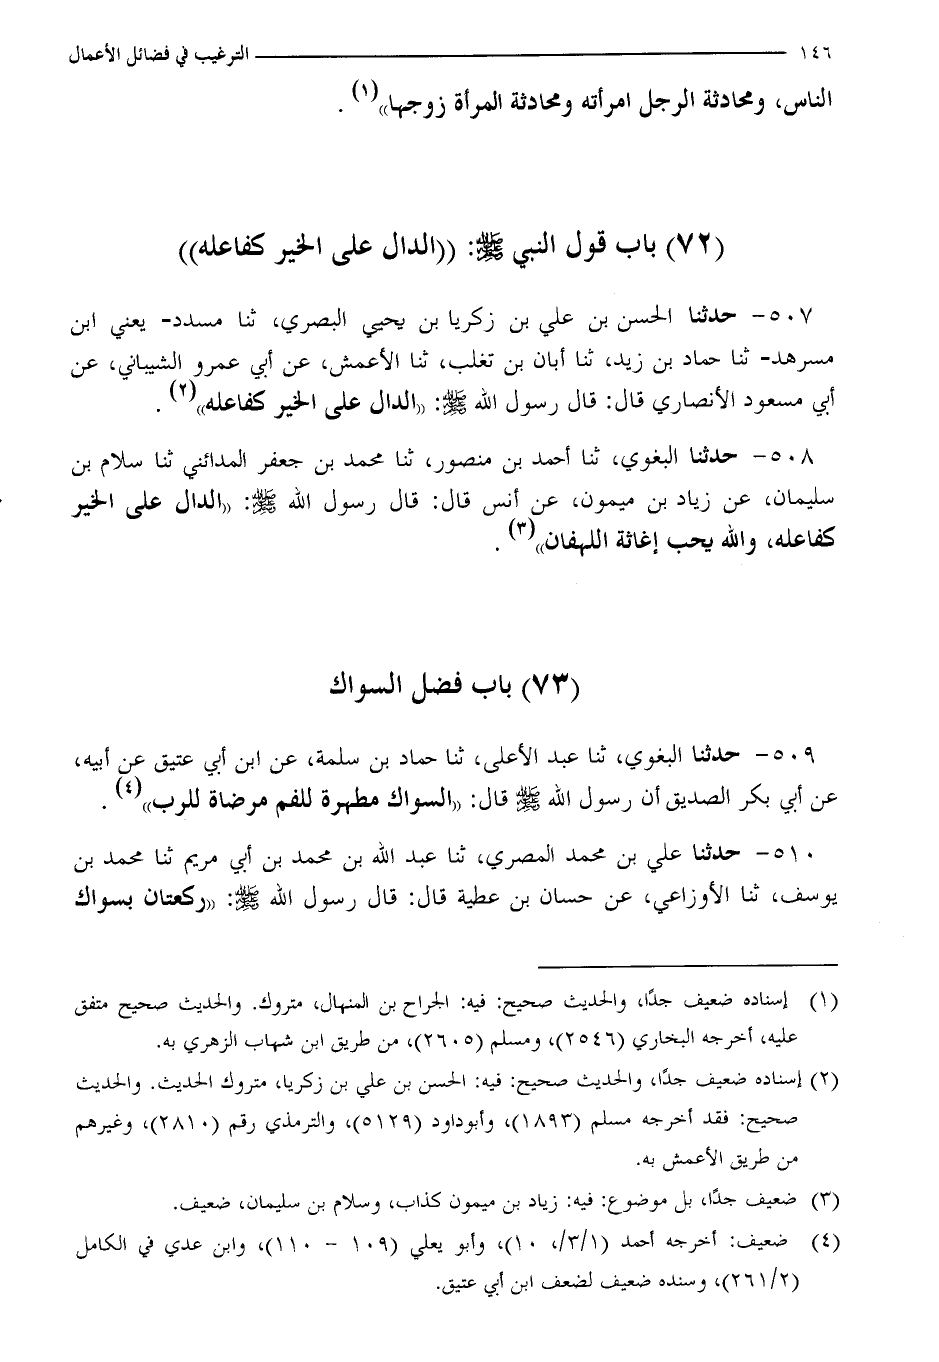 ١٤٦ الترغيب في فضائل الأعمال
الناس، ومحادثة الرجل امرأته ومحادثة المرأة زوجها»(١) .
(٧٢) باب قول النبي ﷺ: ((الدال على الخير كفاعله))
٥٠٧- حدثنا الحسن بن علي بن زكريا بن يحيي البصري، ثنا مسدد- يعني ابن
مسرهد- ثنا حماد بن زيد، ثنا أبان بن تغلب، ثنا الأعمش، عن أبي عمرو الشيباني، عن
أبي مسعود الأنصاري قال: قال رسول الله ﷺ: «الدال على الخير كفاعله»(٢) .
٥٠٨- حدثنا البغوي، ثنا أحمد بن منصور، ثنا محمد بن جعفر المدائني ثنا سلام بن
سليمان، عن زياد بن ميمون، عن أنس قال: قال رسول الله ﷺ: «الدال على الخير
كفاعله، والله يحب إغاثة اللهفان»(٣) .
(٧٣) باب فضل السواك
٥٠٩- حدثنا البغوي، ثنا عبد الأعلى، ثنا حماد بن سلمة، عن ابن أبي عتيق عن أبيه،
عن أبي بكر الصديق أن رسول الله ﷺ قال: «السواك مطهرة للفم مرضاة للرب»(٤) .
٥١٠- حدثنا علي بن محمد المصري، ثنا عبد الله بن محمد بن أبي مريم ثنا محمد بن
يوسف، ثنا الأوزاعي، عن حسان بن عطية قال: قال رسول الله ﷺ: «ركعتان بسواك
(١) إسناده ضعيف جدًا، والحديث صحيح: فيه: الجراح بن المنهال، متروك. والحديث صحيح متفق
عليه، أخرجه البخاري (٢٥٤٦)، ومسلم (٢٦٠٥)، من طريق ابن شهاب الزهري به.
(٢) إسناده ضعيف جدًا، والحديث صحيح: فيه: الحسن بن علي بن زكريا، متروك الحديث. والحديث
صحيح: فقد أخرجه مسلم (١٨٩٣)، وأبوداود (٥١٢٩)، والترمذي رقم (٢٨١٠)، وغيرهم
من طريق الأعمش به.
(٣) ضعيف جدًا، بل موضوع: فيه: زياد بن ميمون كذاب، وسلام بن سليمان، ضعيف.
(٤) ضعيف: أخرجه أحمد (٣/١/، ١٠)، وأبو يعلي (١٠٩ - ١١٠)، وابن عدي في الكامل
(٢٦١/٢)، وسنده ضعيف لضعف ابن أبي عتيق.